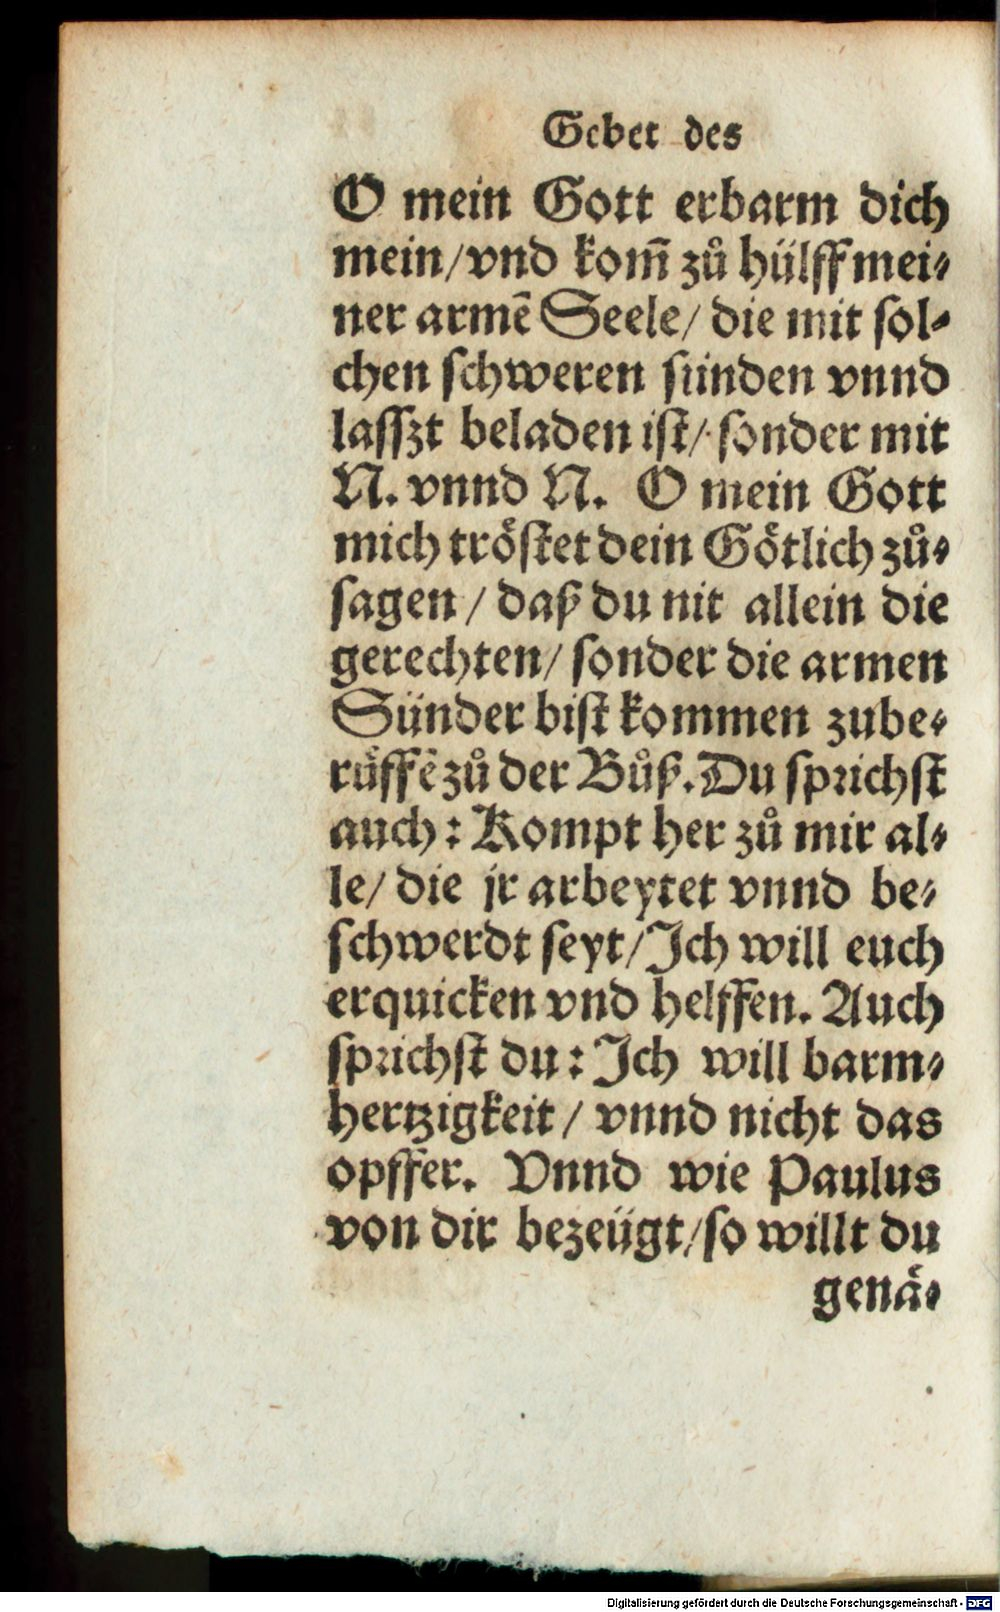 Gebet des
O mein Gott erbarm dich
mein/vnd kom̃ zů hülff mei⸗
ner armẽ Seele/ die mit sol⸗
chen schweren sünden vnnd
lasszt beladen ist/ sonder mit
N. vnnd N. O mein Gott
mich troͤstet dein Goͤtlich zů⸗
sagen / daß du nit allein die
gerechten/ sonder die armen
Sünder bist kommen zube⸗
ruͤffẽ zů der Bůß. Du sprichst
auch: Kompt her zů mir al⸗
le/ die jr arbeytet vnnd be⸗
schwerdt seyt/ Ich will euch
erquicken vnd helffen. Auch
sprichst du: Ich will barm⸗
hertzigkeit / vnnd nicht das
opffer. Vnnd wie Paulus
von dir bezeügt/so willt du
genaͤ⸗
Digitalisierung gefördert durch die Deutsche Forschungsgemeinschaft - DFG